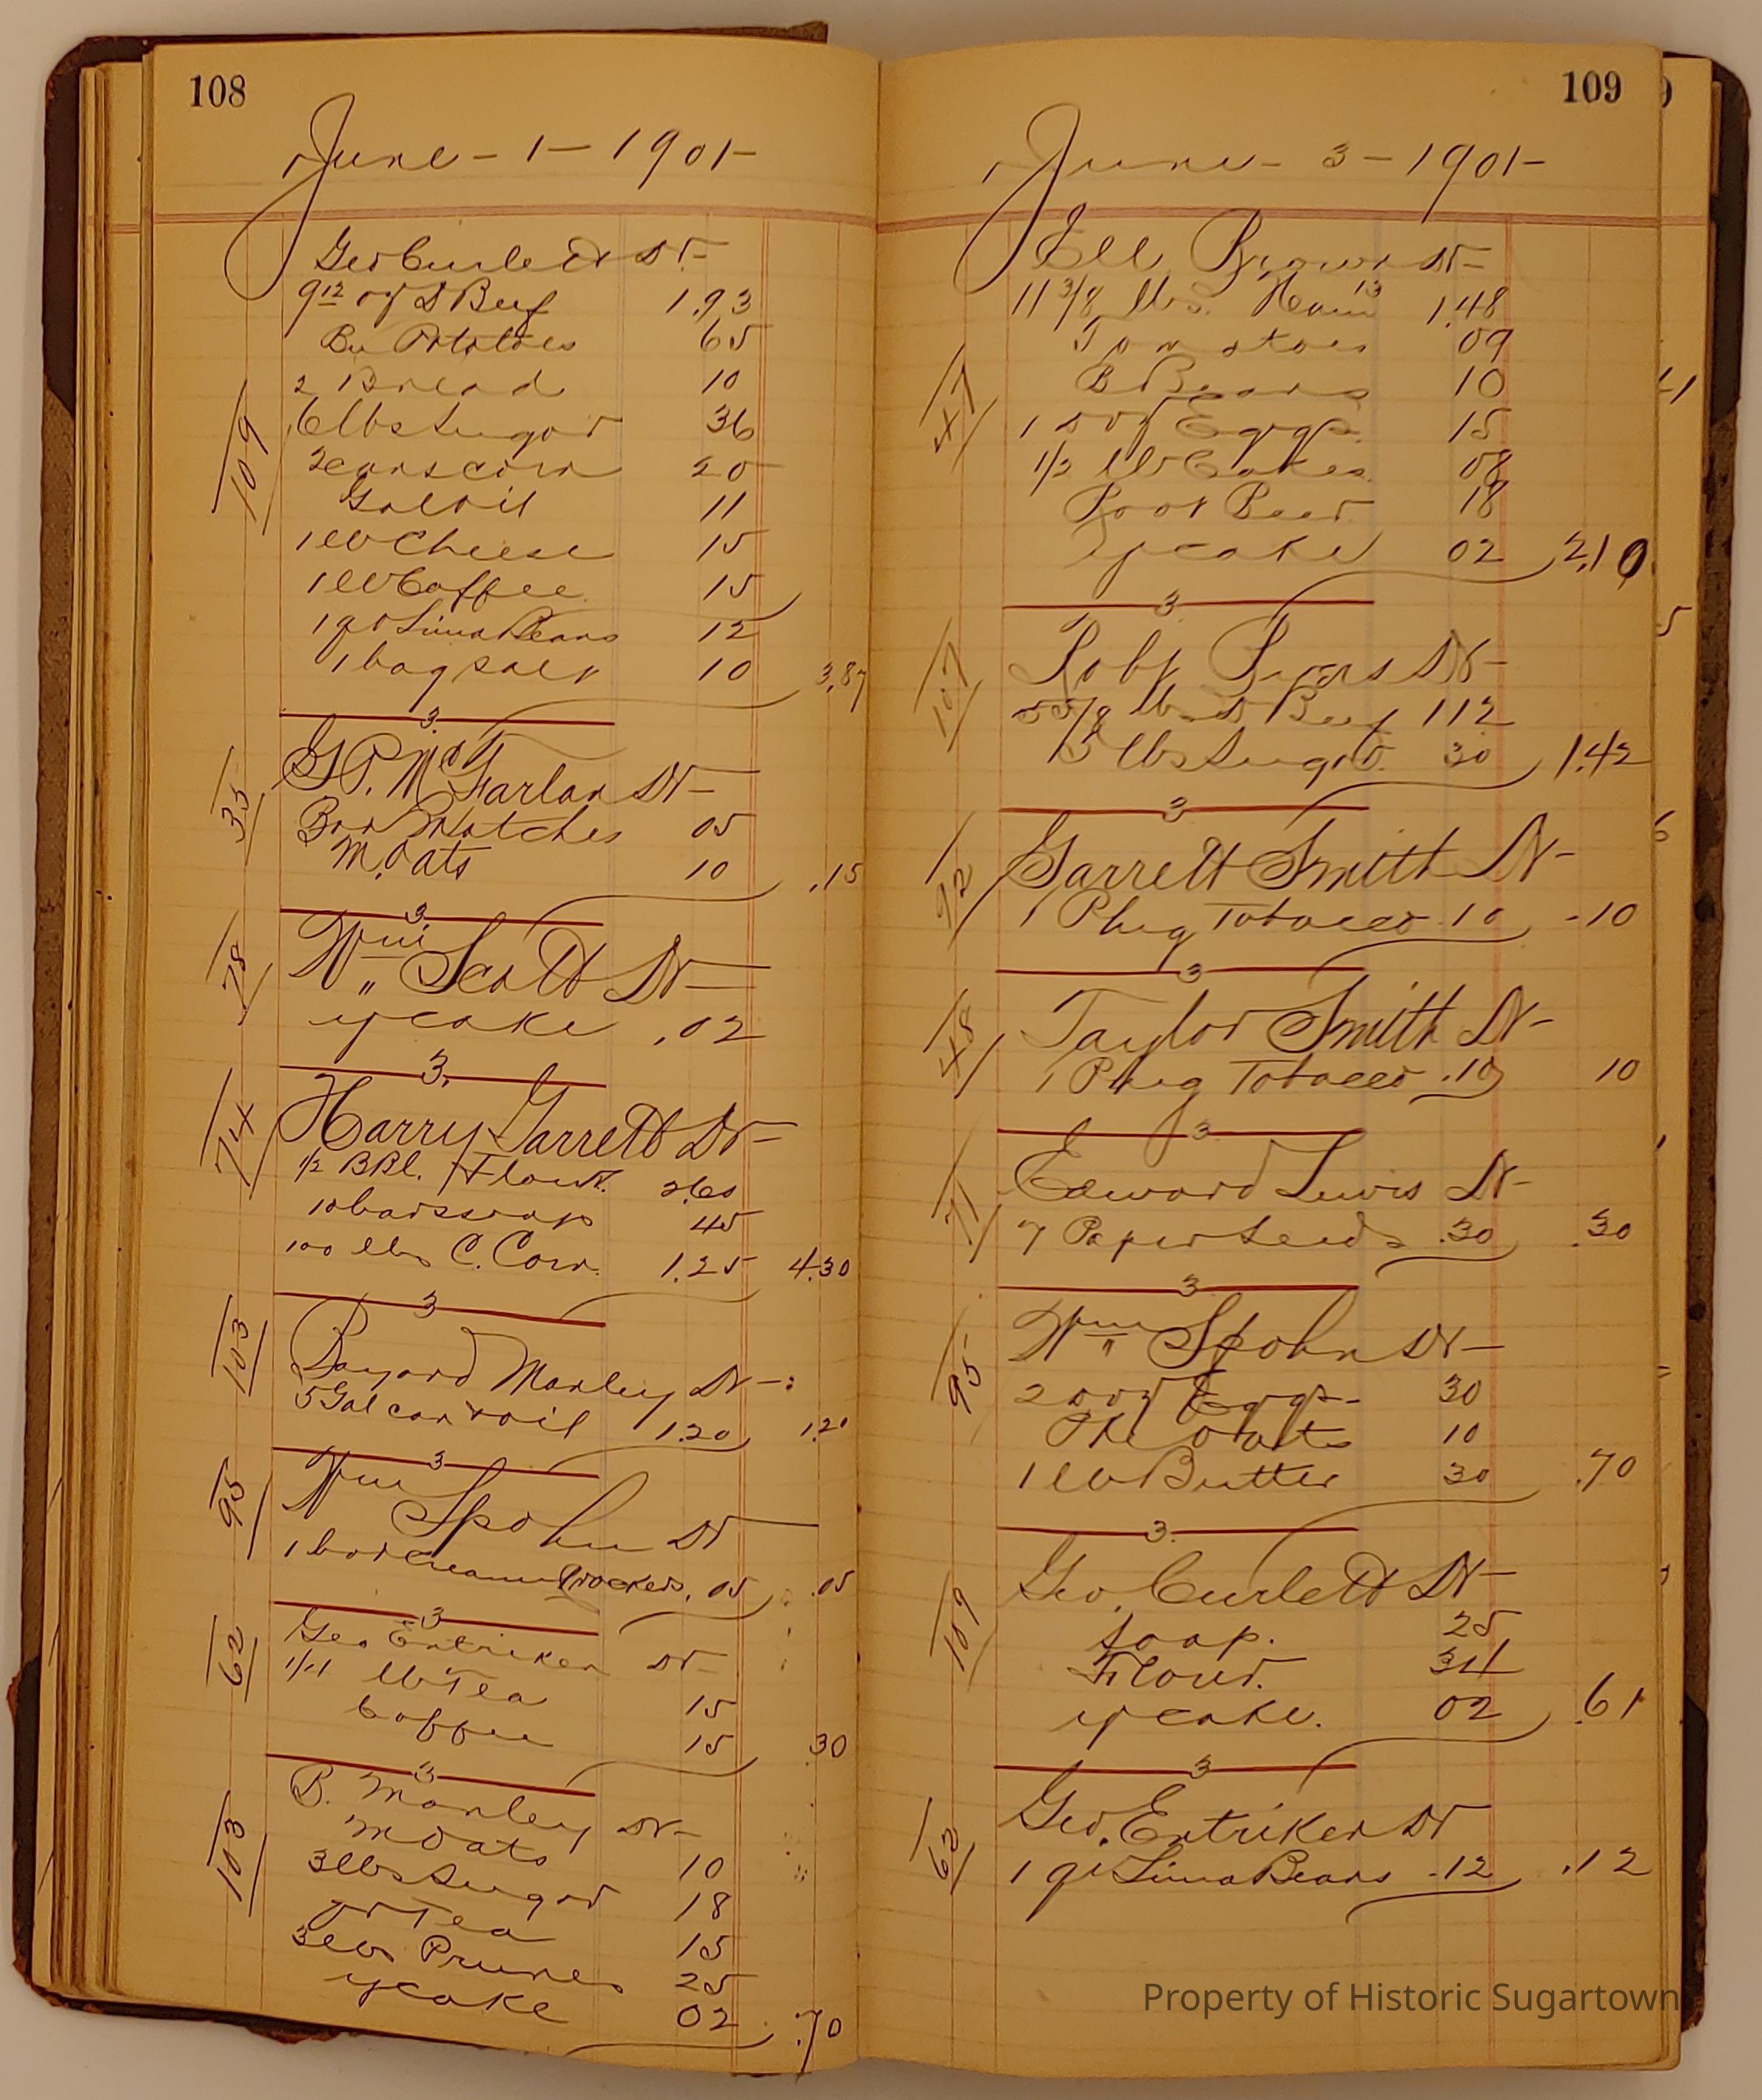 108
June - 1 - 1901 -
Geo Curlett Dr -
9 12 of D Beef 1.93
Bu Potatoes 65
2 Bread 10
109
6 lbs Sugar 36
2 cans corn 20
Gal oil 11
1 lb Cheese 15
1 lb Coffee 15
1 qt Lima Beans 12
1 bag salt 10 3.87
3
35
G P. McFarlan Dr -
Box Matches 05
M. Oats 10 .15
3
78
Wm Scott Dr -
y cake .02
3.
74
Harry Garrett Dr -
1/2 BBl. Flour. 2.60
10 bars soap 45
100 lbs C. Corn. 1.25 4.30
3
103
Bayard Manley Dr - :
5 Gal can & oil 1.20 1.20
3
95
Wm Spohn Dr
1 box Cream Crackers, 05 .05
3
62
Geo Entriken Dr -
1/4 lb Tea 15
Coffee 15 .30
3
103
B. Manley Dr -
M Oats 10
3 lbs Sugar 18
Tea 15
3 lbs Prunes 25
y cake 02 .70
109
June - 3 - 1901 -
Brown Dr -
11 3/8 lbs. Ham 13 1.48
Tomatoes 09
47
B Beans 10
1 doz Eggs 15
1/2 lb Cakes 08
Root Beer 18
y cake 02 2.10
3
107
Robt Dr -
5 5/8 lbs D Beef 112
5 lbs Sugar. 30 1.42
3
92
Garrett Smith Dr -
1 Plug Tobacco .10 -10
3
48
Taylor Smith Dr -
1 Plug Tobacco .10 10
3
71
Edward Lewis Dr -
7 Paper Seeds .30 .30
3
95
Wm Spohn Dr -
2 doz Eggs - 30
Oats 10
1 lb Butter 30 .70
3.
109
Geo. Curlett Dr -
Soap. 25
Flour. 34
y cake. 02 .61
3
62
Geo. Entriken Dr
1 qt Lima Beans .12 .12
Property of Historic Sugartown